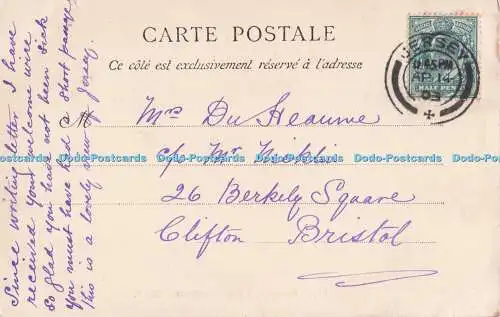 CARTE POSTALE
Ce côté est exclusivement réservé à l'adresse
JERSEY
AP 14
03
HALF PENNY
Mrs Du Heaume
c/o Mr Nicklin
26 Berkely Square
Clifton Bristol
Since writing letter I have
received your welcome wire
So glad you have not been sick
you must have had a short passage
This is a lovely view of Jersey
Dodo-Postcards Dodo-Postcards Dodo-Postcards Dodo-Postcards Dodo-Postcards Dodo-Postcards